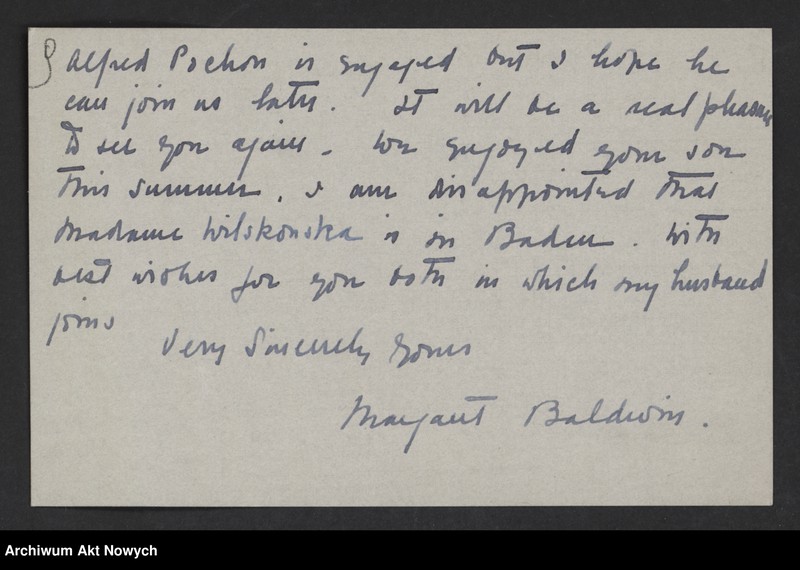 Alfred Pochon is engaged but I hope he
can join us later. It will be a real pleasure
to see you again. We enjoyed your son
this summer. I am disappointed that
Madame Wilskonska is in Baden. With
best wishes for you both in which my husband
joins
Very Sincerely Yours
Margaret Baldwin.
Archiwum Akt Nowych